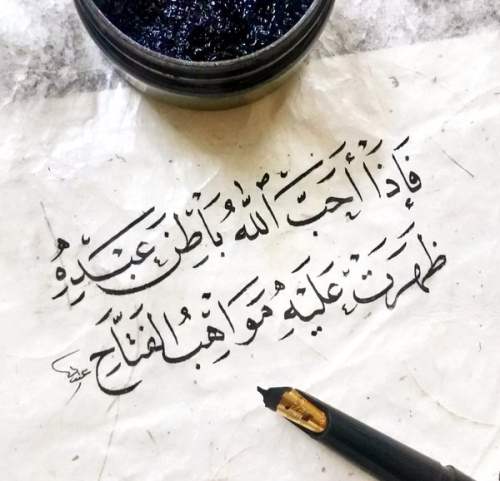 فَإِذَا أَحَبَّ اللّٰهُ بَاطِنَ عَبْدِهِ
ظَهَرَتْ عَلَيْهِ مَوَاهِبُ الفَتَّاحِ